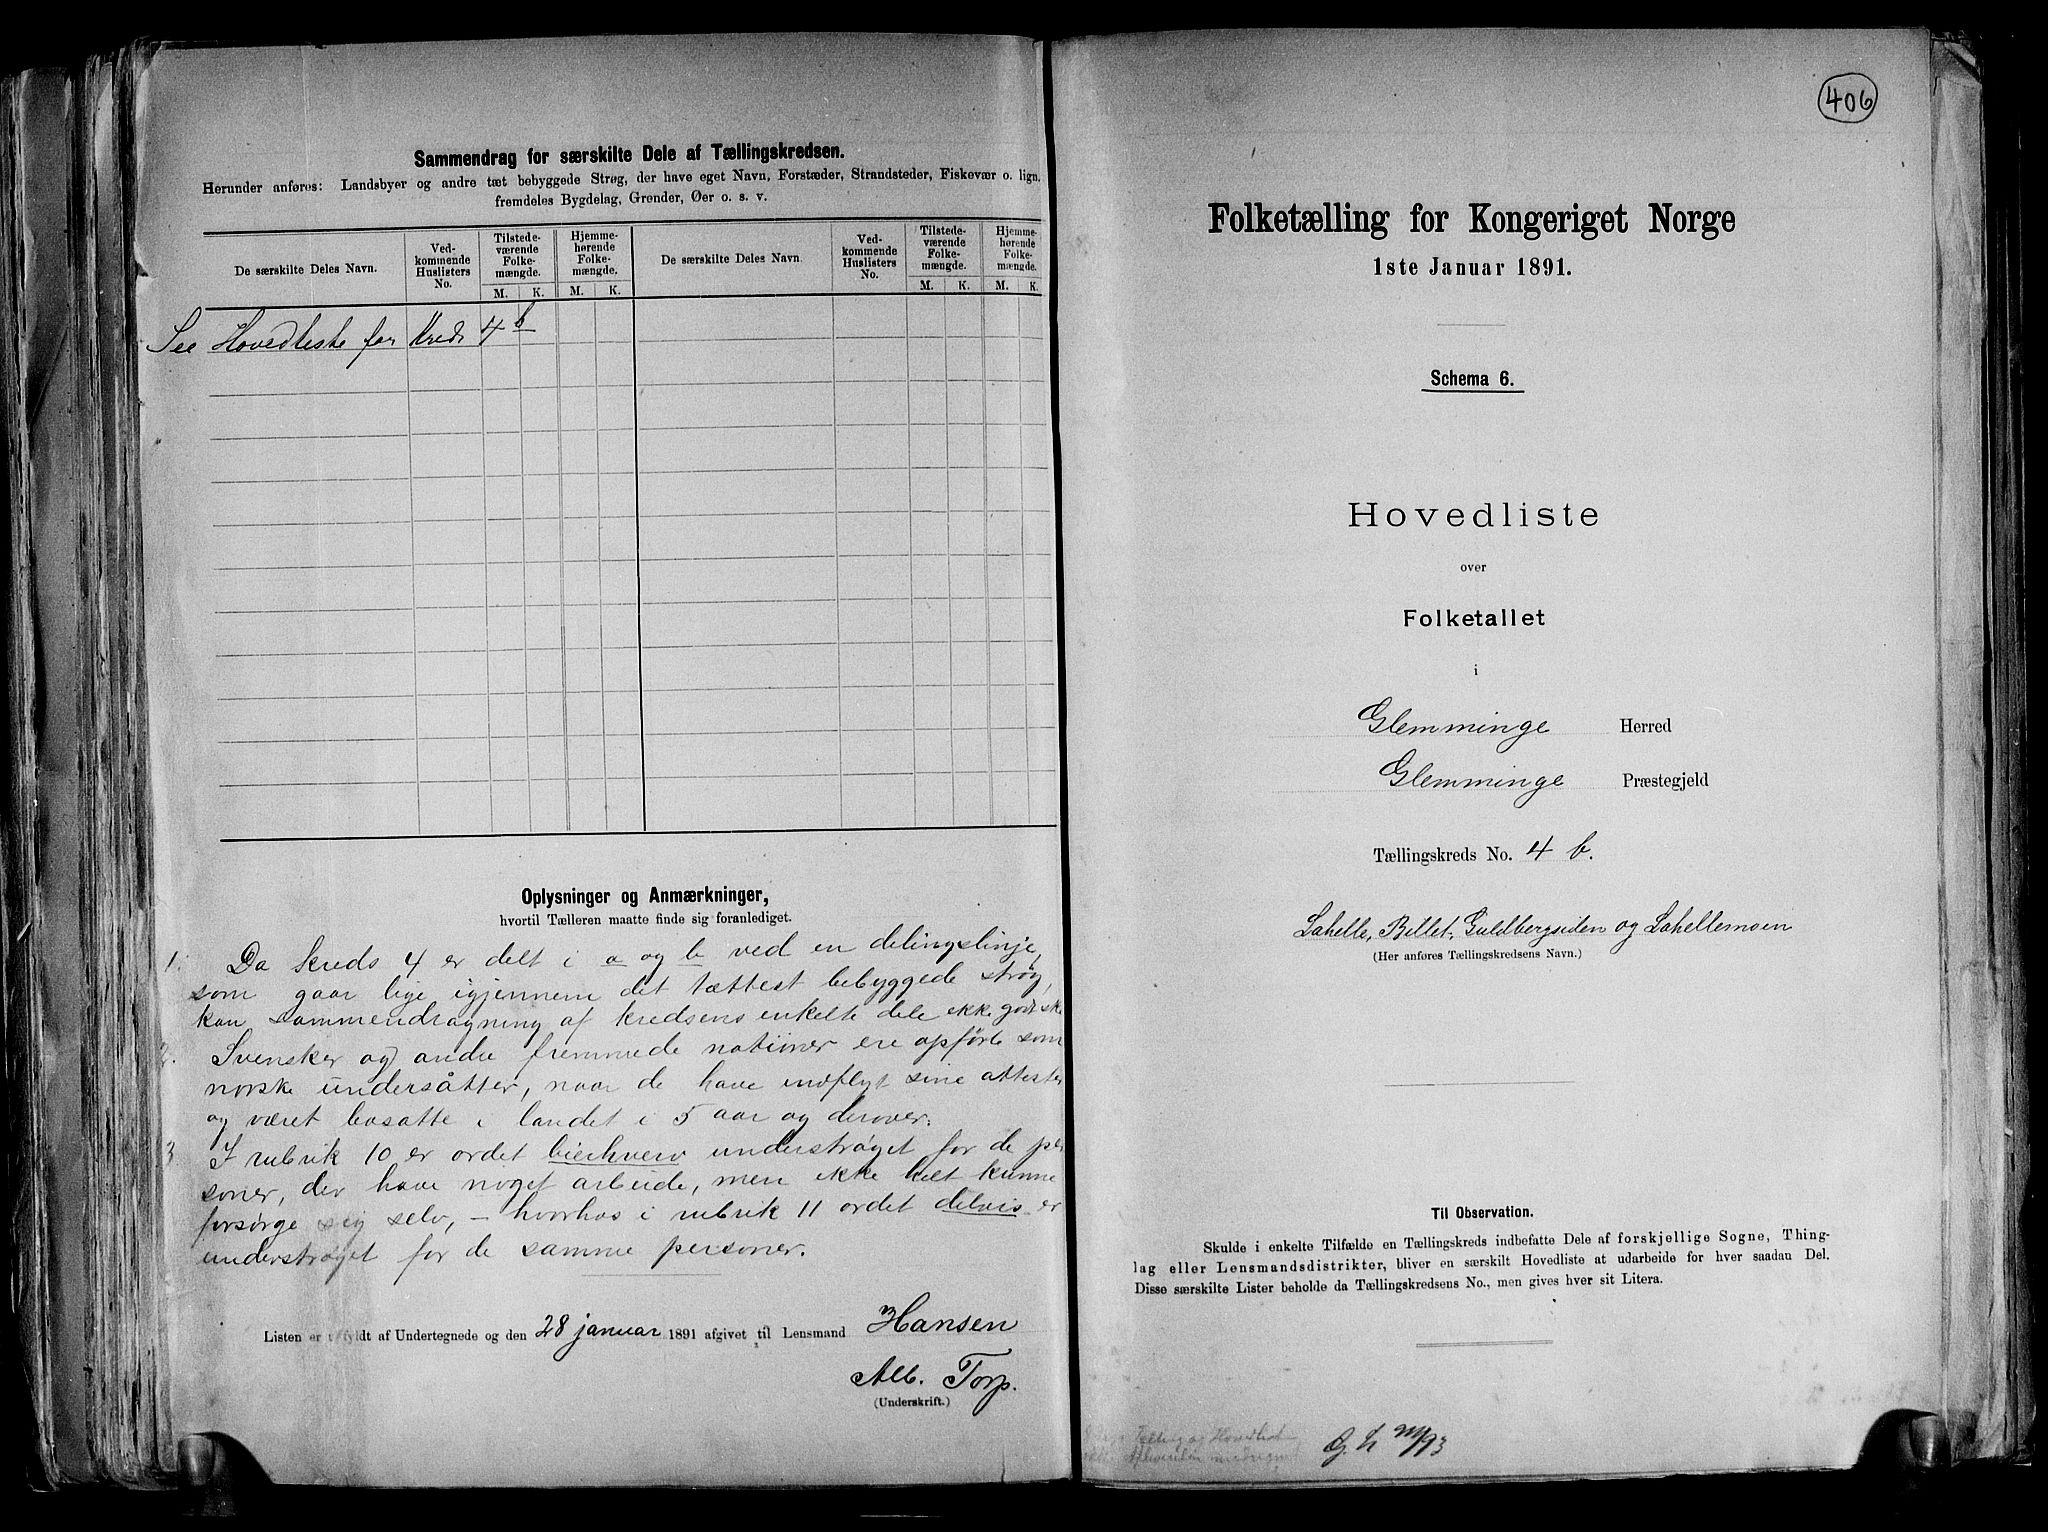 Sammendrag for særskilte Dele af Tællingskredsen.
Herunder anføres: Landsbyer og andre tæt bebyggede Strøg, der have eget Navn, Forstæder, Strandsteder, Fiskevær o. lign.
fremdeles Bygdelag, Grender, Øer o. s. v.
De særskilte Deles Navn.
Ved-
kommende
Huslisters
No.
Tilstede-
værende
Folke-
mængde.
Hjemme-
hørende
Folke-
mængde.
De særskilte Deles Navn.
Ved-
kommende
Huslisters
No.
Tilstede-
værende
Folke-
mængde.
Hjemme-
hørende
Folke-
mængde.
M. K. M. K. M. K. M. K.
See Hovedliste for Kreds 4 b
Oplysninger og Anmærkninger,
hvortil Tælleren maatte finde sig foranlediget.
1. Da kreds 4 er delt i a og b ved en delingslinje,
som gaar lige igjennem det tættest bebyggede strøg,
kan sammendragning af kredsens enkelte dele ikke godt ske
2. Svensker og andre fremmede nationer ere opførte som
norske undersåtter, naar de have indflyt sine attester
og været bosatte i landet i 5 aar og derover.
3 I rubrik 10 er ordet bierhverv understrøget for de per
soner, der have noget arbeide, men ikke helt kunne
forsørge sig selv, – hvorhos i rubrik 11 ordet delvis er
understrøget for de samme personer.
Listen er udfyldt af Undertegnede og den 28 januar 1891 afgivet til Lensmand Hansen
Alb. Torp.
(Underskrift.)
406
Folketælling for Kongeriget Norge
1ste Januar 1891.
Schema 6.
Hovedliste
over
Folketallet
i
Glemminge Herred
Glemminge Præstegjeld
Tællingskreds No. 4 b.
Lahelle, Billet, Guldbergsiden og Lahellemoen
(Her anføres Tællingskredsens Navn.)
Til Observation.
Skulde i enkelte Tilfælde en Tællingskreds indbefatte Dele af forskjellige Sogne, Thing-
lag eller Lensmandsdistrikter, bliver en særskilt Hovedliste at udarbeide for hver saadan Del.
Disse særskilte Lister beholde da Tællingskredsens No., men gives hver sit Litera.